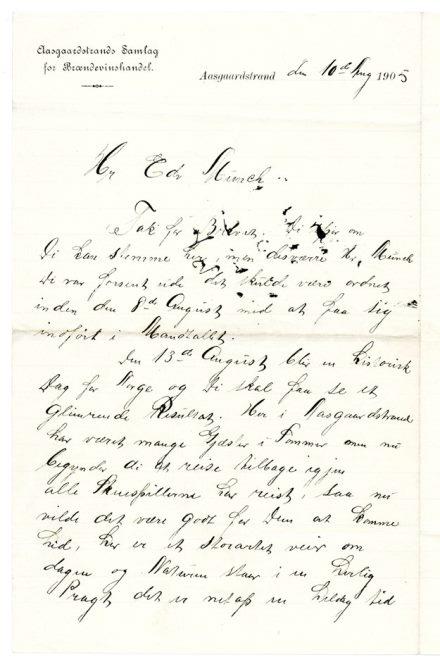 Aasgaardstrands Samlag
for Brændevinshandel.
Aasgaardstrand den 10de Aug 1905
Hr Edv Munch
Tak for Brevet. De om
De kan stemme her, men desværre Hr. Munch
De var forsent ude det skulde være ordnet
inden den 8de August med at faa sig
indført i Mandtallet.
Den 13de August blir en historisk
Dag for Norge og De skal faa se et
glimrende Resultat. Her i Aasgaardstrand
har været mange Gjæster i Sommer men nu
begynder di at reise tilbage igjen
alle Skuespillerne har reist, saa nu
vilde det være godt for Dem at komme
hid, her er et storartet veir om
dagen og Naturen staar i en herlig
Pragt det er netop en deilig tid